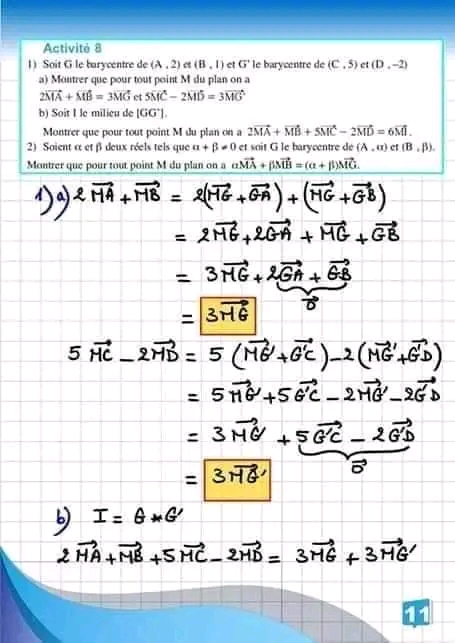 Activité 8
1) Soit G le barycentre de (A , 2) et (B , 1) et G' le barycentre de (C , 5) et (D , -2)
a) Montrer que pour tout point M du plan on a
2MA⃗ + MB⃗ = 3MG⃗ et 5MC⃗ − 2MD⃗ = 3MG'⃗
b) Soit I le milieu de [GG'].
Montrer que pour tout point M du plan on a 2MA⃗ + MB⃗ + 5MC⃗ − 2MD⃗ = 6MI⃗.
2) Soient α et β deux réels tels que α + β ≠ 0 et soit G le barycentre de (A , α) et (B , β).
Montrer que pour tout point M du plan on a αMA⃗ + βMB⃗ = (α + β)MG⃗.
1) a) 2MA⃗ + MB⃗ = 2(MG⃗ + GA⃗) + (MG⃗ + GB⃗)
= 2MG⃗ + 2GA⃗ + MG⃗ + GB⃗
= 3MG⃗ + 2GA⃗ + GB⃗
0⃗
= 3MG⃗
5MC⃗ − 2MD⃗ = 5(MG'⃗ + G'C⃗) − 2(MG'⃗ + G'D⃗)
= 5MG'⃗ + 5G'C⃗ − 2MG'⃗ − 2G'D⃗
= 3MG'⃗ + 5G'C⃗ − 2G'D⃗
0⃗
= 3MG'⃗
b) I = G * G'
2MA⃗ + MB⃗ + 5MC⃗ − 2MD⃗ = 3MG⃗ + 3MG'⃗
11